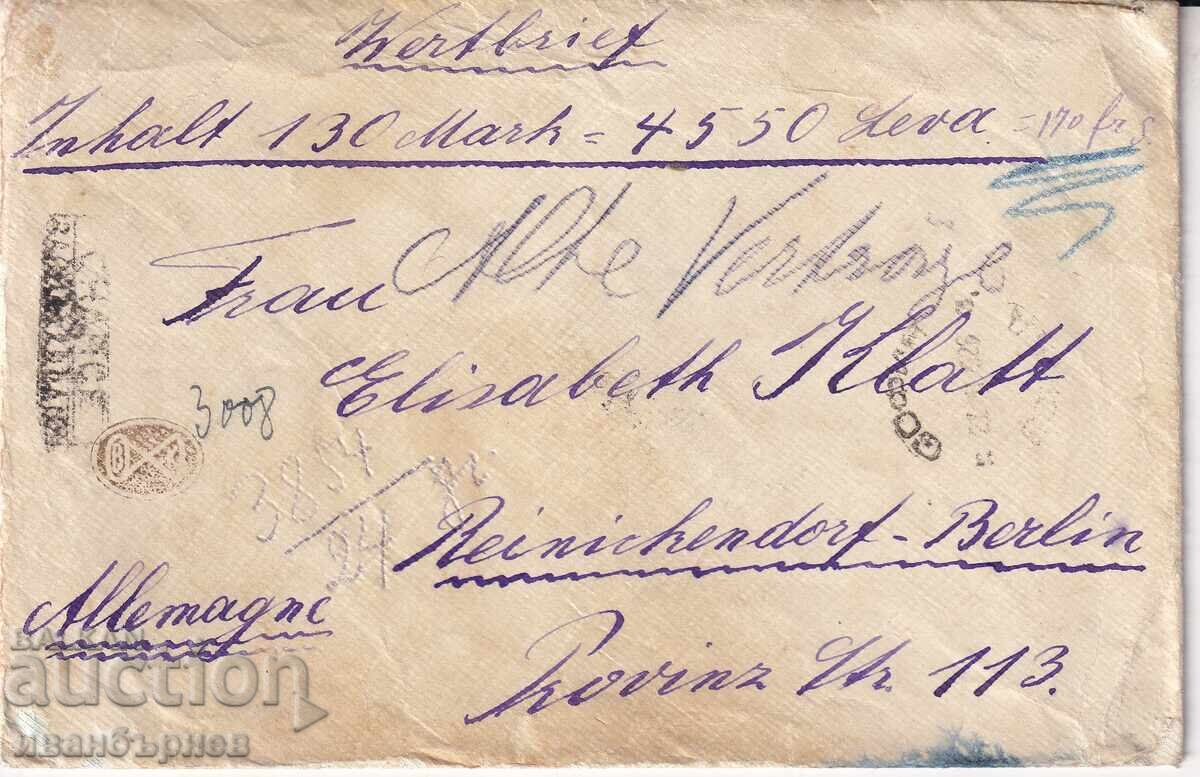 Wertbrief
Inhalt 130 Mark = 4550 Leva = 170 frs
Alte Verträge
Frau
Elisabeth Klatt
3008
3854
24 gr.
Reinickendorf-Berlin
Allemagne
Provinz Str. 113.
BALKAN
auction
Иванбърнев